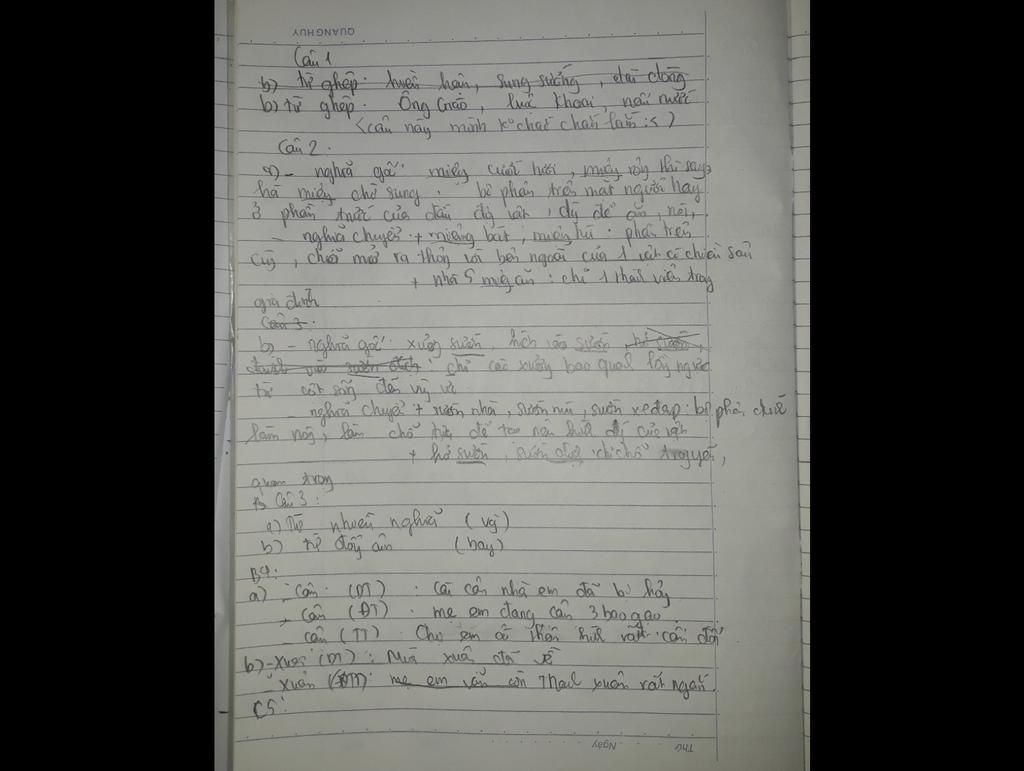 QUANG HUY
Câu 1
b) từ ghép: hiền hận, sung sướng, dài dòng
b) từ ghép: Ông Giáo, luộc khoai, nấu nước
<câu này mình ko chắc chắn lắm :< )
Câu 2.
a) - nghĩa gốc: miệng cười tươi, miệng rộng thì sang,
há miệng chờ sung: bộ phận trên mặt người hay
ở phần trước của đầu động vật, dùng để ăn, nói,
- nghĩa chuyển + miệng bát, miệng hũ: phần trên
cùng, chỗ mở ra thông với bên ngoài của 1 vật có chiều sâu
+ nhà 5 miệng ăn: chỉ 1 thành viên trong
gia đình
Câu 3.
b) - nghĩa gốc: xương sườn, hích vào sườn, hở sườn,
đánh vào sườn địch: chỉ các xương bao quanh lồng ngực
từ cột sống đến vùng ức
- nghĩa chuyển + sườn nhà, sườn núi, sườn xe đạp: bộ phận chính
làm nòng, làm chỗ dựa để tạo nên hình dáng của vật
+ hở sườn, sườn địch: chỉ chỗ trọng yếu,
quan trọng
Câu 3:
a) Từ nhiều nghĩa (vì)
b) từ đồng âm (hay)
B4:
a) - Cân (DT): Cái cân nhà em đã bị hỏng
- Cân (ĐT): mẹ em đang cân 3 bao gạo
- cân (TT): Chị em có thân hình rất cân đối
b) - Xuân (DT): Mùa xuân đã về
- xuân: mẹ em vẫn còn Thanh xuân rất ngắn
C5:
Thứ Ngày